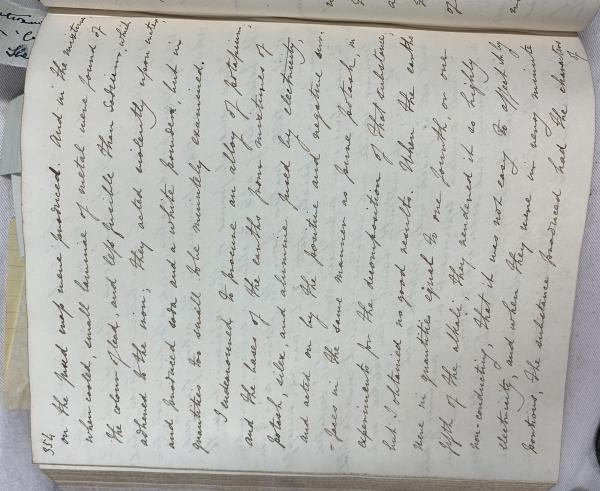 354
on the fused mass were produced. And in the mixture
when cooled, small laminæ of metal were found of
the colour of lead, and less fusible than sodium, which
adhered to the iron; they acted violently upon water,
and produced soda and a white powder, but in
quantities too small to be minutely examined.
I endeavoured to procure an alloy of potassium,
and the bases of the earths from mixtures of
potash, silex, and alumine fused by electricity,
and acted on by the positive and negative sur-
-faces in the same manner as pure potash, in
experiments for the decomposition of that substance,
but I obtained no good results. When the earths
were in quantities equal to one fourth, or one
fifth of the alkali, they rendered it so highly
non-conducting, that it was not easy to affect it by
electricity, and when they were in very minute
portions, the substance produced had the characters
of